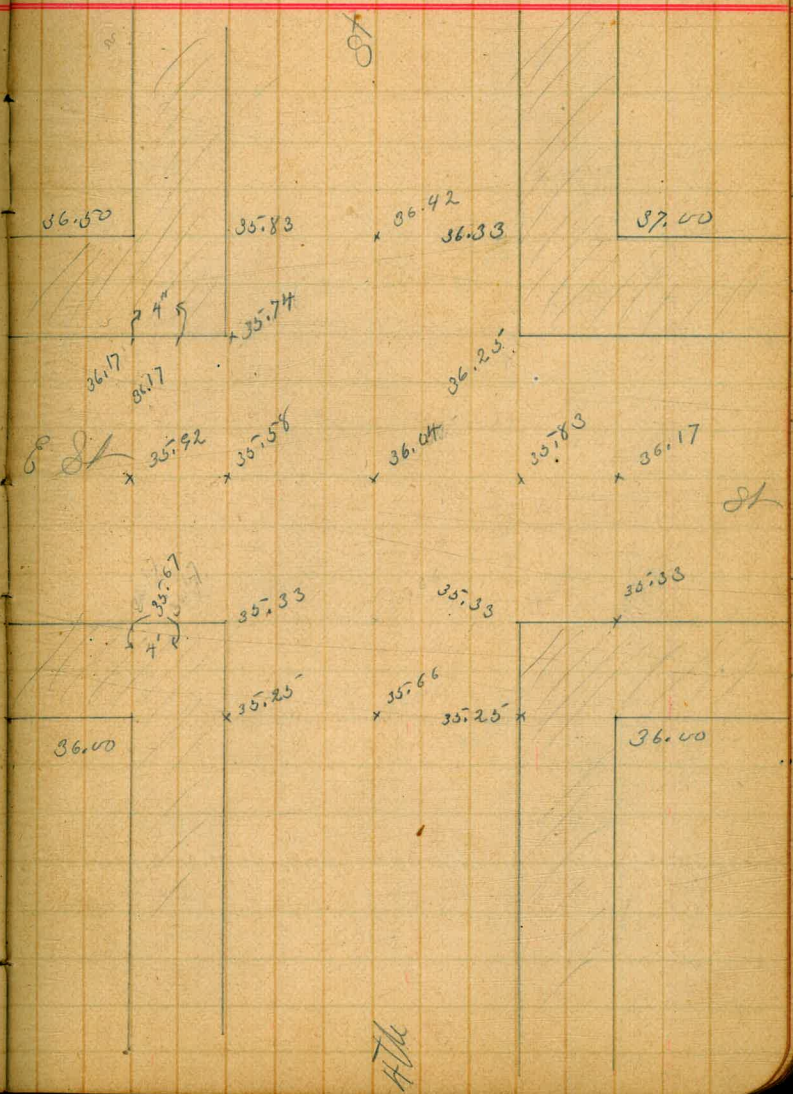 St
36.42
36.50 35.83 36.33 37.00
4"
35.74
36.17 36.17 36.25
E St 35.92 35.58 36.04 35.83 36.17
St
35.67 35.33 35.33 35.33
4'
35.25 35.66 35.25
36.00 36.00
4Th